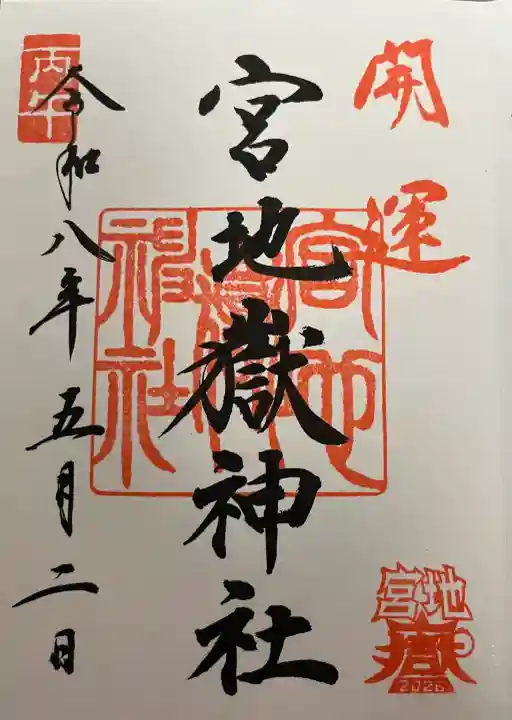 開運
宮地嶽神社
宮地嶽神社
宮地
嶽
2026
丙午
令和八年五月二日